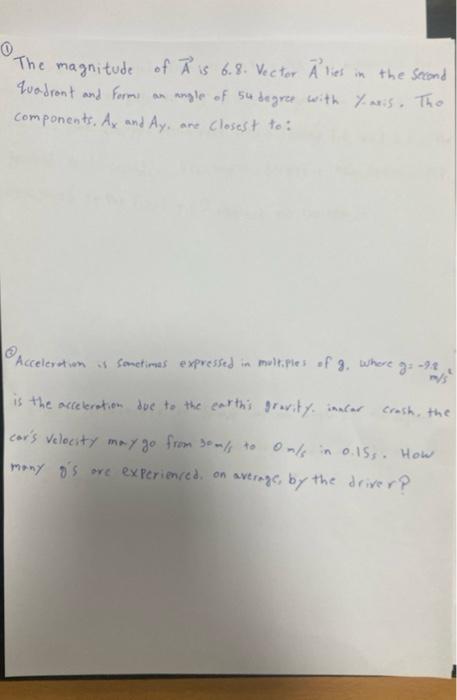 ① The magnitude of A⃗ is 6.8. Vector A⃗ lies in the second
quadrant and forms an angle of 54 degree with Y-axis. The
components, Ax and Ay, are closest to:
② Acceleration is sometimes expressed in multiples of g, where g= -9.8 m/s²
is the acceleration due to the earth's gravity. in a car crash, the
car's velocity may go from 30 m/s to 0 m/s in 0.15s. How
many g's are experienced, on average, by the driver?